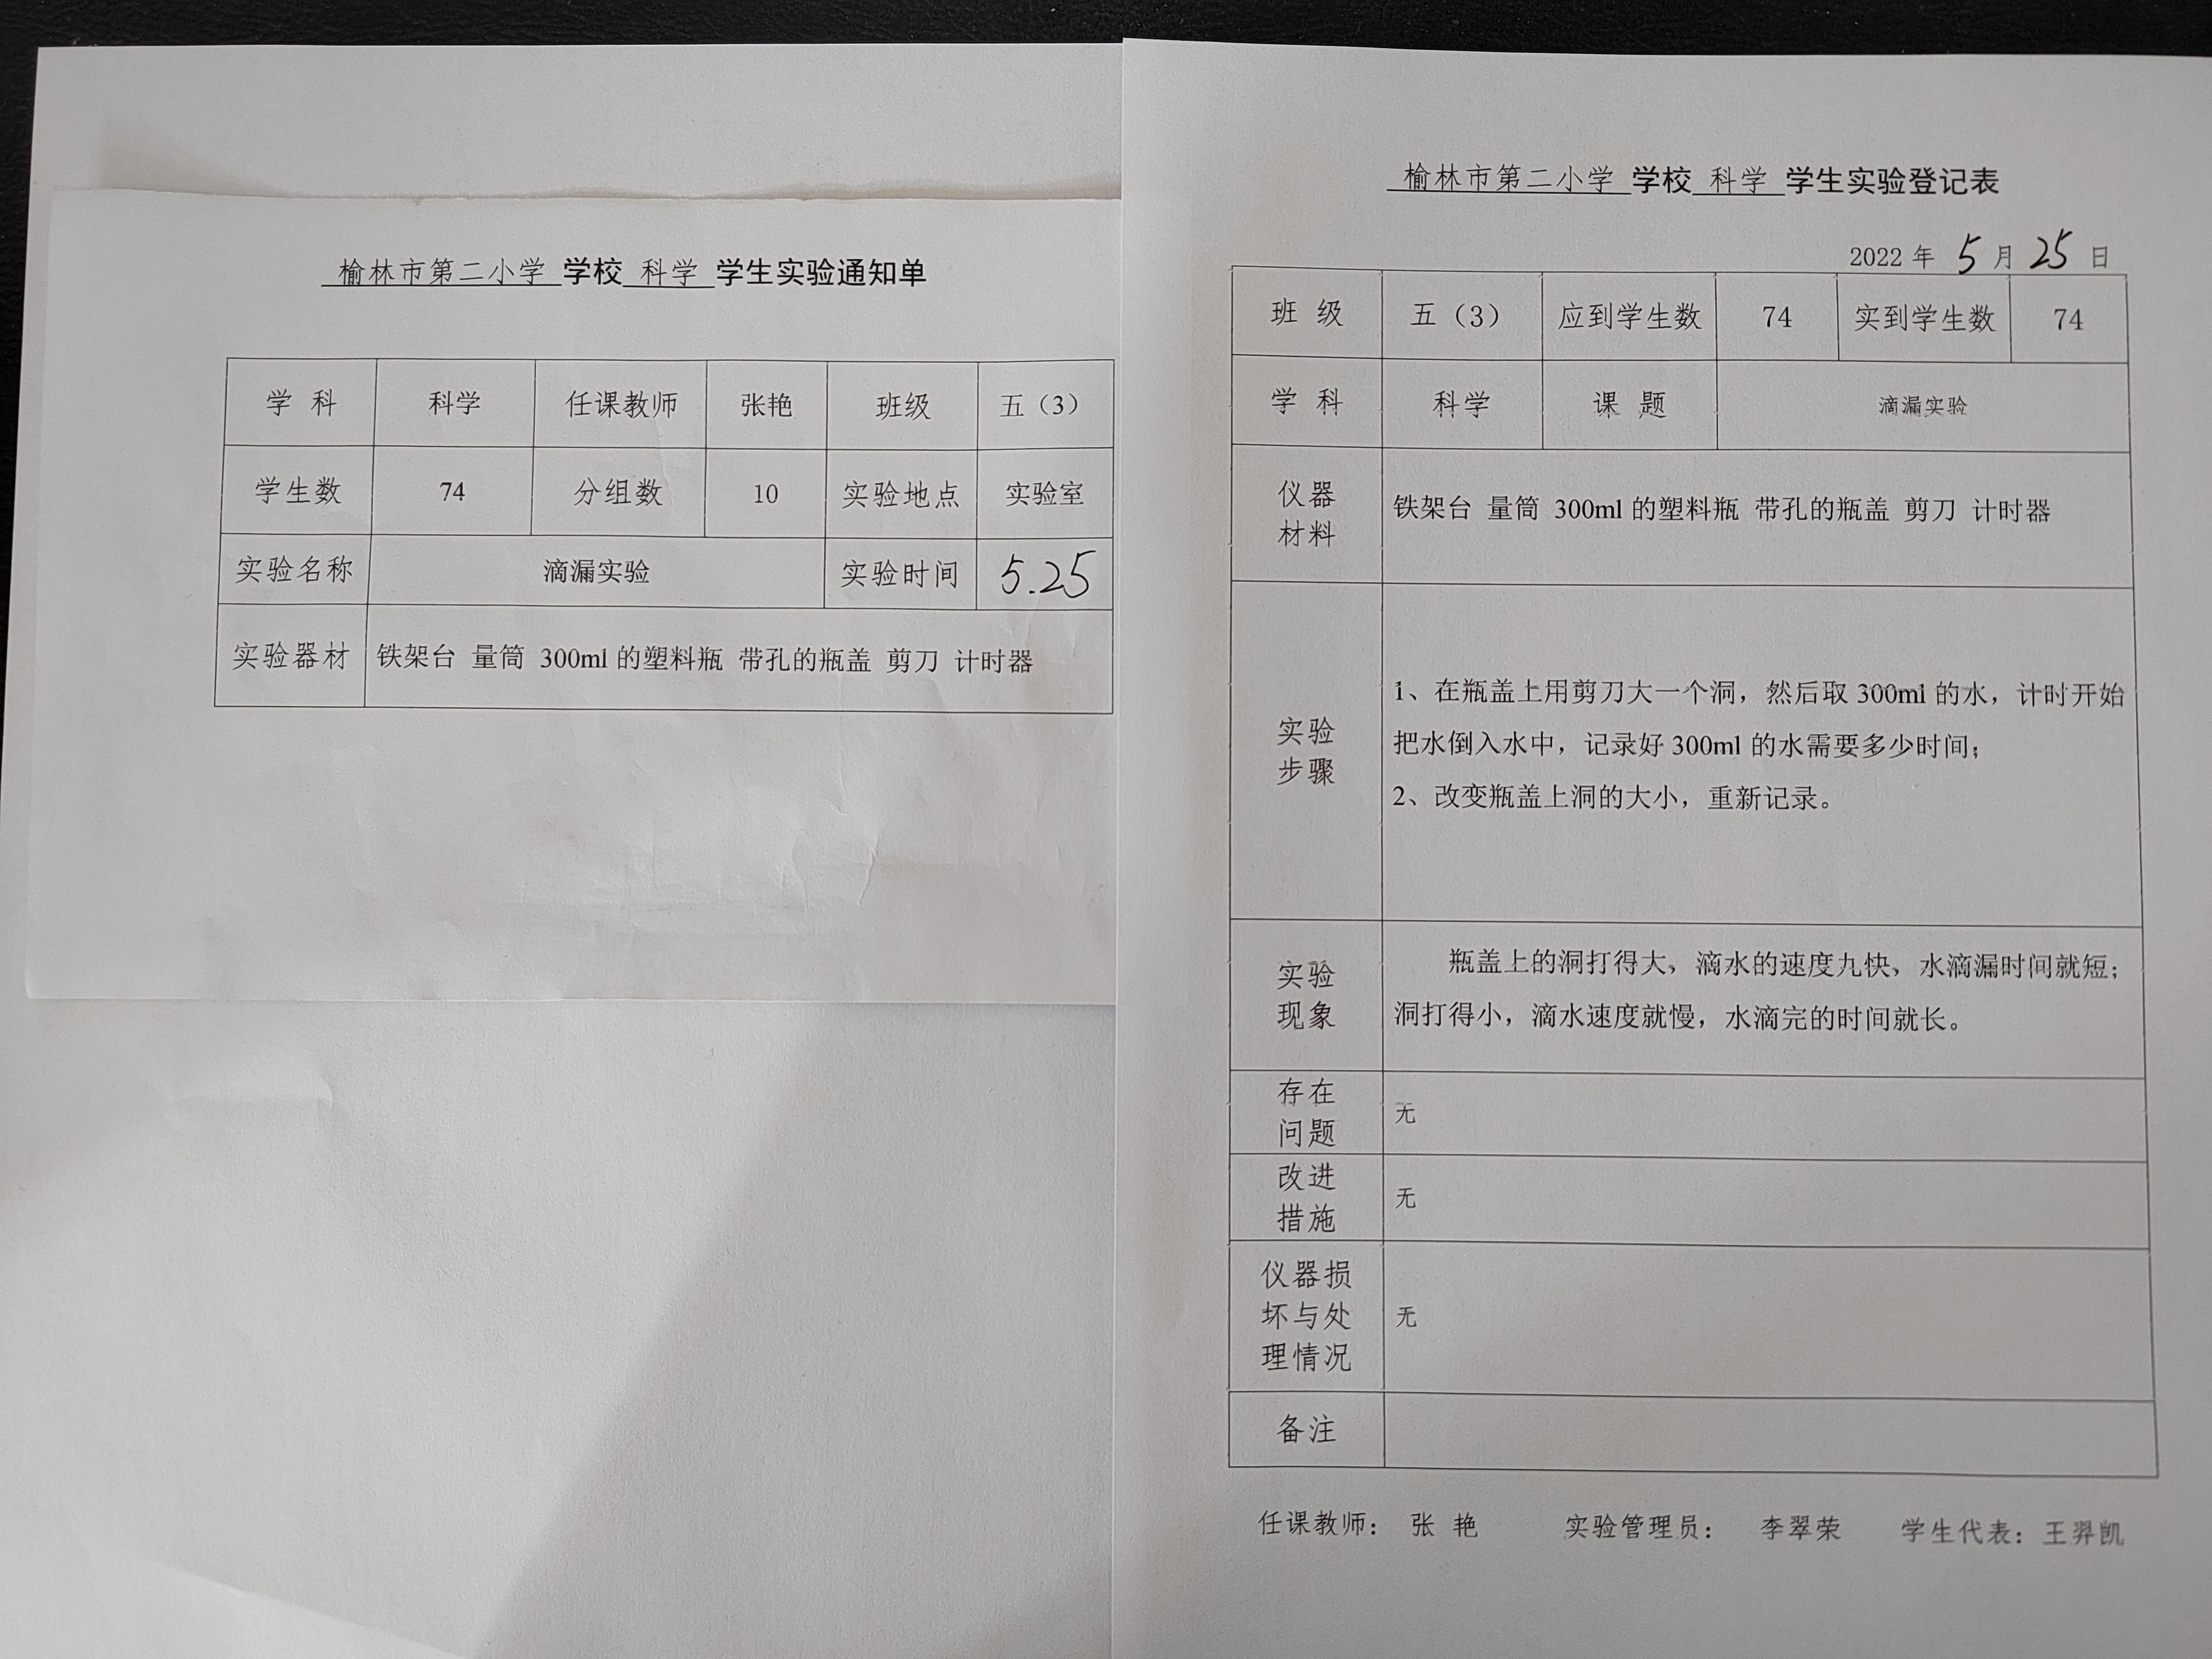 榆林市第二小学 学校 科学 学生实验通知单
学 科 科学 任课教师 张艳 班级 五（3）
学生数 74 分组数 10 实验地点 实验室
实验名称 滴漏实验 实验时间 5.25
实验器材 铁架台 量筒 300ml 的塑料瓶 带孔的瓶盖 剪刀 计时器
榆林市第二小学 学校 科学 学生实验登记表
2022 年 5 月 25 日
班 级 五（3） 应到学生数 74 实到学生数 74
学 科 科学 课 题 滴漏实验
仪器
材料
铁架台 量筒 300ml 的塑料瓶 带孔的瓶盖 剪刀 计时器
实验
步骤
1、在瓶盖上用剪刀大一个洞，然后取 300ml 的水，计时开始
把水倒入水中，记录好 300ml 的水需要多少时间；
2、改变瓶盖上洞的大小，重新记录。
实验
现象
瓶盖上的洞打得大，滴水的速度九快、水滴漏时间就短；
洞打得小，滴水速度就慢，水滴完的时间就长。
存在
问题
无
改进
措施
无
仪器损
坏与处
理情况
无
备注
任课教师： 张 艳 实验管理员： 李翠荣 学生代表：王羿凯